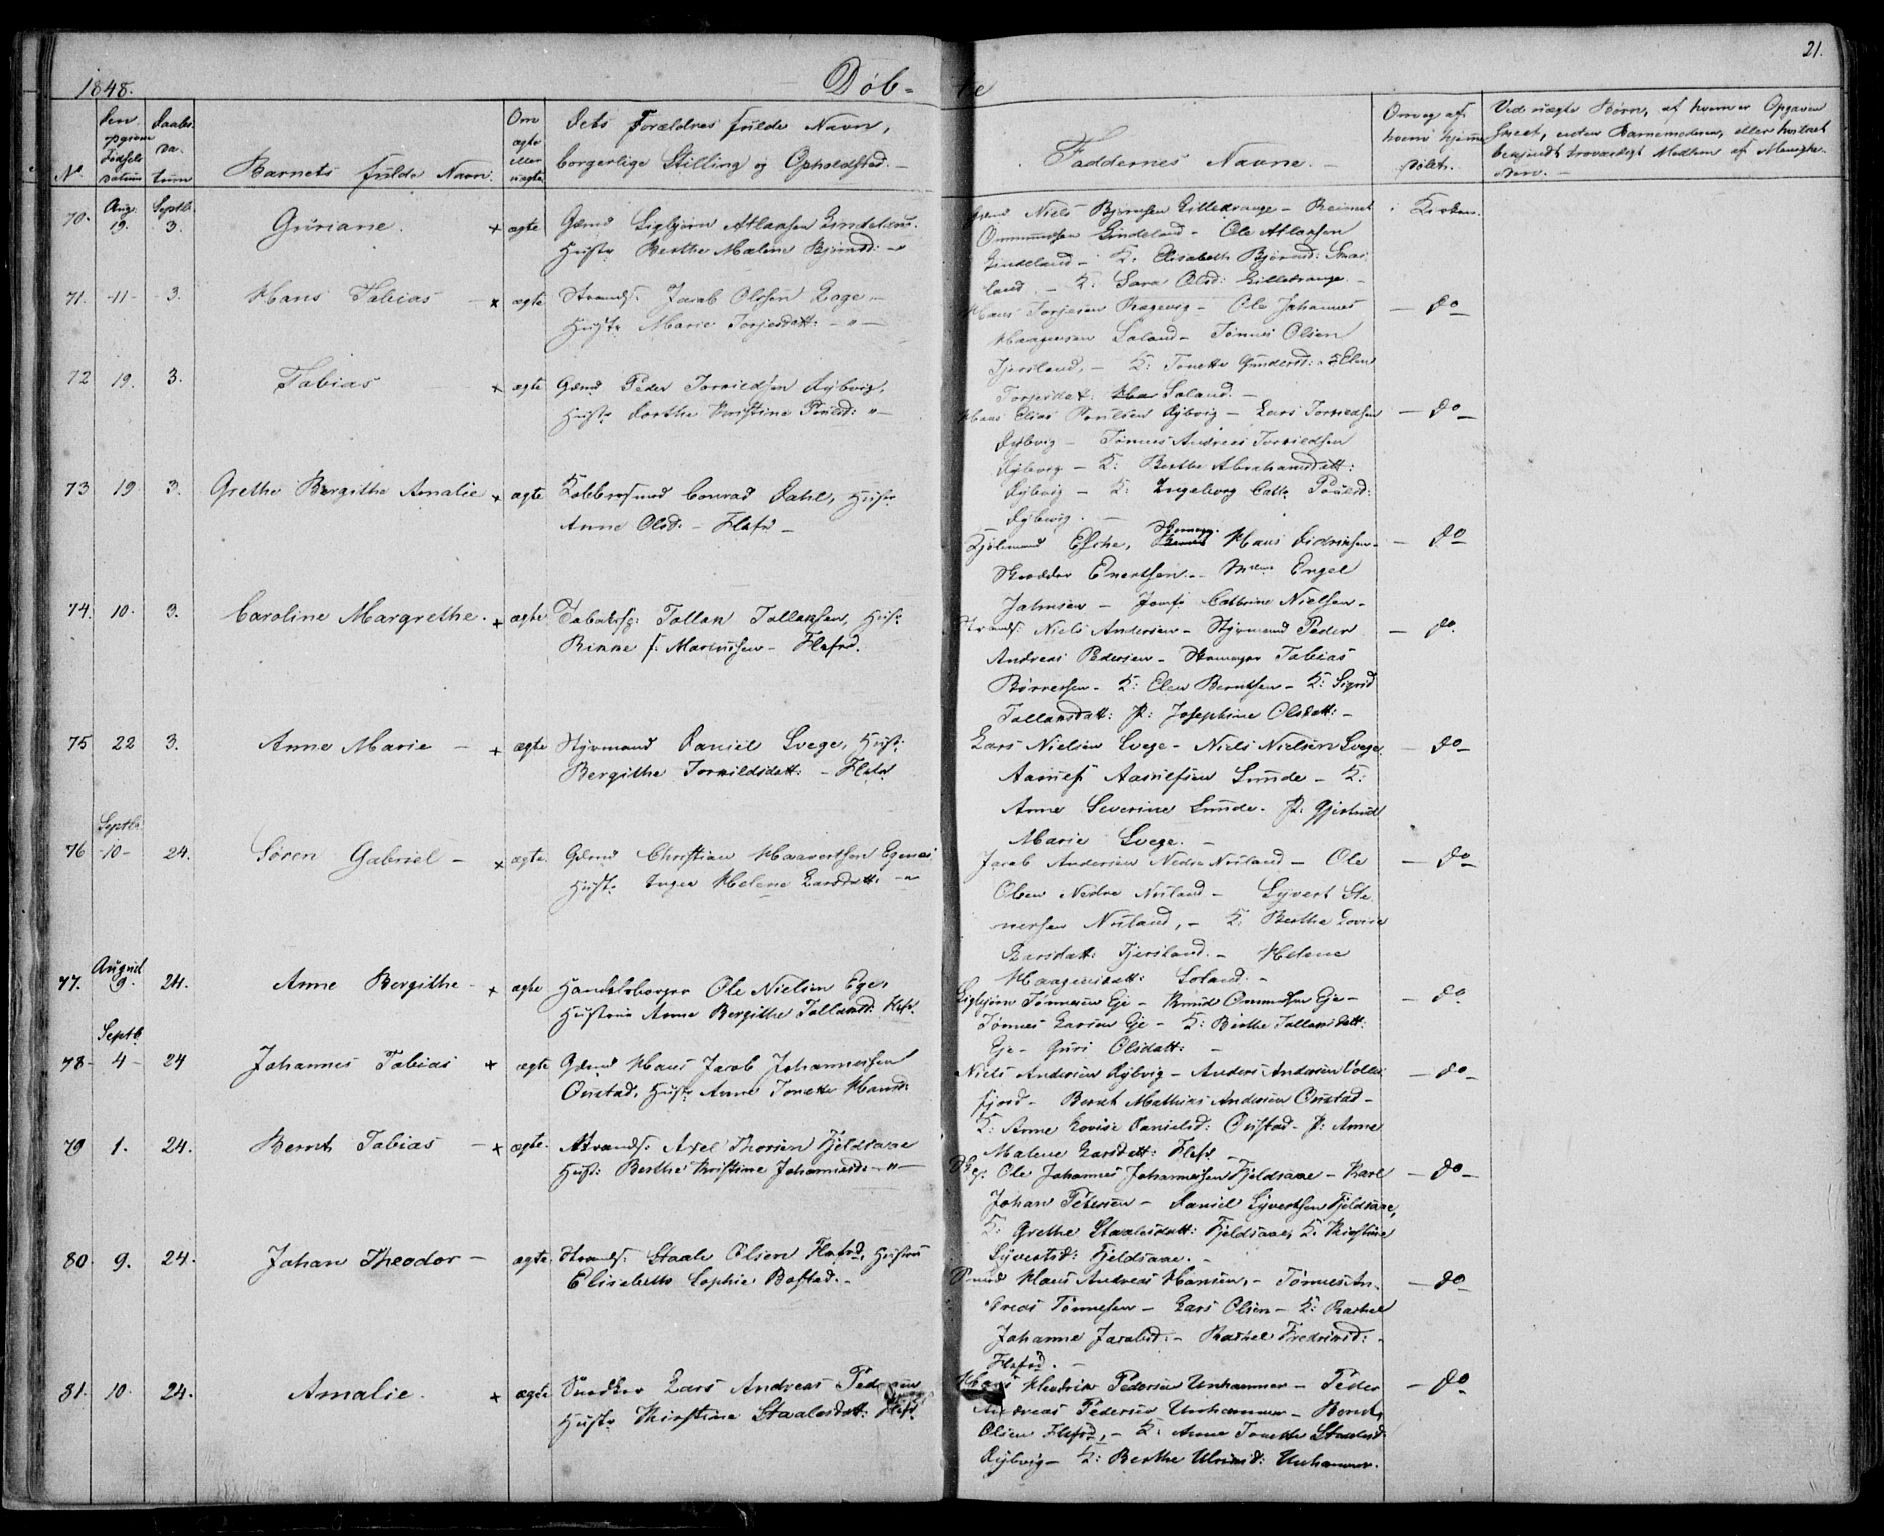 21.
1848.
Døb-
te
No.
Den opgivne Fødsels Datum
Daabs Datum
Barnets fulde Navn.
Om ægte eller uægte.
Dets Forældres fulde Navn,
borgerlige Stilling og Opholdsted.
Faddernes Navne.
Om og af hvem hjemmedøbt.
Ved uægte Børn, af hvem er Opgaven
skeet, enten Barnemoderen, eller hvilket
bekjendt troværdigt Medlem af Menigheden.
70. Aug. 19. Septb. 3. Guriane. × ægte
Gmd Sigbjørn Atlaksen Lindeland.
Hustr. Berthe Maline Bjørnsd: -"-
Gmd Niels Bjørnsen Lilledrange - Reinert
Ommundsen Lindeland - Ole Atlaksen
Lindeland - K: Elisabeth Bjørnsd:
land. - K: Sara Olsd: Lilledrange. -
i Kirken.
71. -11- -3. Hans Tobias - × ægte
Strands: Jacob Olsen Log -
Hustr. Marie Torjesdatt: -"-
Hans Torjesen Rægevig - Ole Johannes
Haagensen Loland - Tønnes Olsen
Tjersland, - K: Tonette Gundersd: - K: Elen
Torjesdat: Loland. -
- do
72 19. 3. Tobias - × ægte
Gmd Peder Torkildsen Dybvig,
Hustr. Dorthe Kristine Poulsd: "-
Hans Elias Poulsen Dybvig - Lars Torkildsen
Dybvig - Tønnes Andreas Torkildsen
Dybvig - K: Berthe Abrahamsdatt:
Dybvig - K: Ingeborg Cath. Poulsd:
Dybvig. -
- do -
73 19 3. Grethe Bergithe Amalie × ægte
Kobbersmed Conrad Dahl, Hustr.
Anne Olsd. - Flekf. -
Kjøbmand Esche, Skomag. Hans Didriksen -
Skrædder Evertsen. - Mdme Engel
Jahnsen - Jomf. Cathrine Nielsen -
- do -
74. 10. 3. Caroline Margrethe. × ægte
Tobaksf: Tollak Tollaksen, Hustr.
Rinne f. Marcussen - Flekf.
Strands: Niels Andersen - Styrmand Peder
Andreas Pedersen - Skomager Tobias
Børresen - K: Elen Berntsen - K: Sigrid
Tollaksdatt: P: Josephine Olsdatt: -
- do.
75 22 3. Anne Marie - × ægte
Styrmand Daniel Svege, Hust:
Bergithe Torkildsdatt: - Flekf
Lars Nielsen Svege - Niels Nielsen Svege
Aanuf Aanulfsen Sunde - K:
Anne Severine Sunde. P: Gjertrud
Marie Svege. -
- do -
76 Septb. -10- 24. Søren Gabriel - × ægte.
Gmd Christian Haavertsen Egenæs
Hust. Inger Helene Larsdatt: -"-
Jacob Andersen Nedre Nuland - Ole
Olsen Nedre Nuland - Syvert Ste-
nersen Nuland, - K: Berthe Lovise
Larsdatt: Tjersland. - Helene
Haagensdatt: Loland. -
- do -
77. August 9. 24. Anne Bergithe - × ægte
Handelsborger Ole Nielsen Eye,
Hustrue Anne Bergithe Tollaksd: Flekf.
Sigbjørn Tønnesen Eje - Knud Ommundsen Eje -
Tønnes Larsen Eje - K: Berthe Tollaksdatt:
Eje - Guri Olsdatt: -
- do
78- Septb. 4- 24 Johannes Tobias × ægte
Gmd Hans Jacob Johannessen
Oustad, Hustr. Anne Tonette Hansd:
Niels Andersen Dybvig - Anders Andersen Voldes-
fjord - Bernt Mathias Andersen Oustad -
K: Anne Lovise Danielsd: Oustad - P: Anne
Malene Larsdatt: Flekf. -
- do -
79 1. 24. Bernt Tobias - × ægte.
Strands: Axel Thorsen Fjeldsaae
Hust: Berthe Kristine Johannesd: -"-
Ole Johannes Johannessen Fjeldsaae - Karl
Johan Petersen - Daniel Syvertsen Fjeldsaae,
K: Grethe Staalesdatt: Fjeldsaae, K: Kirstine
Syvertsd: Fjeldsaae. -
- do -
80. 9. 24. Johan Theodor - ægte.
Strands: Staale Olsen Flekfd, Hustrue
Elisabeth Sophie Bostad. -
Smed Hans Andreas Hansen, - Tønnes An-
dreas Tønnesen - Lars Olsen - K: Rachel
Johanne Jacobsd: - Rachel Fredriksd: -
Flekfd. -
- do -
81. 10. 24. Amalie. × ægte
Snedker Lars Andreas Pedersen
Hustr. Kirstine Staalesdatt: Flekf.
Hans Hendrik Pedersen Unhammer - Peder
Andreas Pedersen Unhammer - Bernt
Olsen Flekfd, - K: Anne Tonette Staalesd:
Dybvig - K: Berthe Ulriksd: Unhammer.
- do -